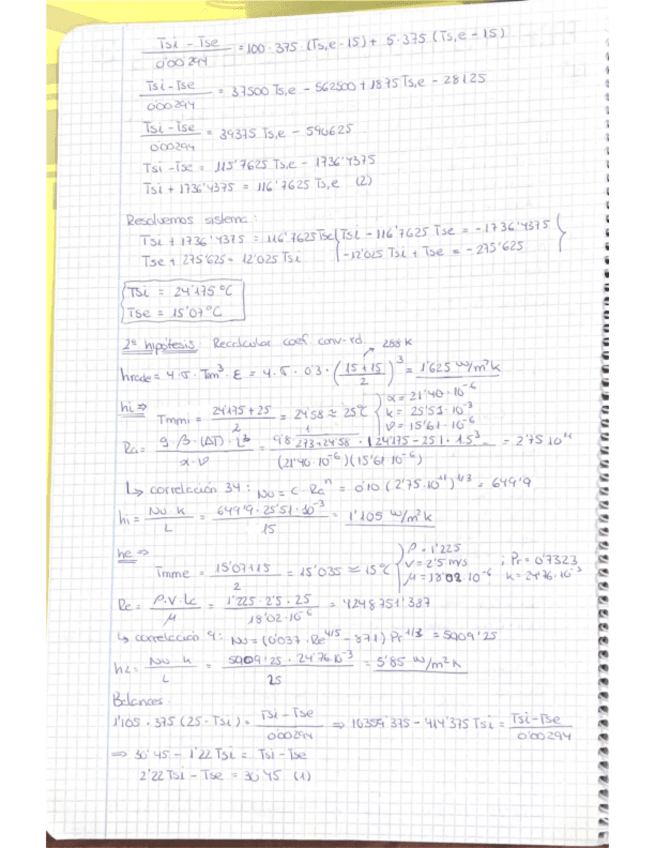 Tsi - Tse / 0'00294 = 100·375·(Ts,e-15) + 5·375 (Ts,e-15)
Tsi-Tse / 0'00294 = 37500 Ts,e - 562500 + 1875 Ts,e - 28125
Tsi-Tse / 0'00294 = 39375 Ts,e - 590625
Tsi - Tse = 115'7625 Ts,e - 1736'4375
Tsi + 1736'4375 = 116'7625 Ts,e (2)
Resolvemos sistema:
Tsi + 1736'4375 = 116'7625 Tse } Tsi - 116'7625 Tse = -1736'4375
Tse + 275'625 = 12'025 Tsi { -12'025 Tsi + Tse = -275'625
Tsi = 24'175 ºC
Tse = 15'07 ºC
2ª hipótesis: Recalcular coef. conv. rd. → 288 K
hrade = 4·σ·Tm³·ε = 4·σ·0'3·(15+15 / 2)³ = 1'625 W/m²K
hi ⇒ Tmmi = 24'175+25 / 2 = 24'58 ≈ 25ºC { α = 21'40·10⁻⁶
k = 25'51·10⁻³
ν = 15'61·10⁻⁶
Ra = g·β·(ΔT)·L³ / α·ν = 9'8· 1/273+24'58 ·|24'175-25|·15³ / (21'40·10⁻⁶)(15'61·10⁻⁶) = 2'75·10¹¹
↳ correlación 34: Nu = C·Raⁿ = 0'10 (2'75·10¹¹)^1/3 = 649'9
hi = Nu·k / L = 649'9·25'51·10⁻³ / 15 = 1'105 W/m²K
he ⇒ Tmme = 15'07+15 / 2 = 15'035 ≈ 15ºC { ρ = 1'225
V = 2'5 m/s ; Pr = 0'7323
μ = 18'02·10⁻⁶ k = 24'76·10⁻³
Re = ρ·V·Lc / μ = 1'225·2'5·25 / 18'02·10⁻⁶ = 4248751'387
↳ correlación 9: Nu = (0'037·Re^4/5 - 871) Pr^1/3 = 5909'25
he = Nu·k / L = 5909'25·24'76·10⁻³ / 25 = 5'85 W/m²K
Balances:
1'105·375 (25-Tsi) = Tsi-Tse / 0'00294 ⇒ 10359'375 - 414'375 Tsi = Tsi-Tse / 0'00294
⇒ 30'45 - 1'22 Tsi = Tsi - Tse
2'22 Tsi - Tse = 30'45 (1)